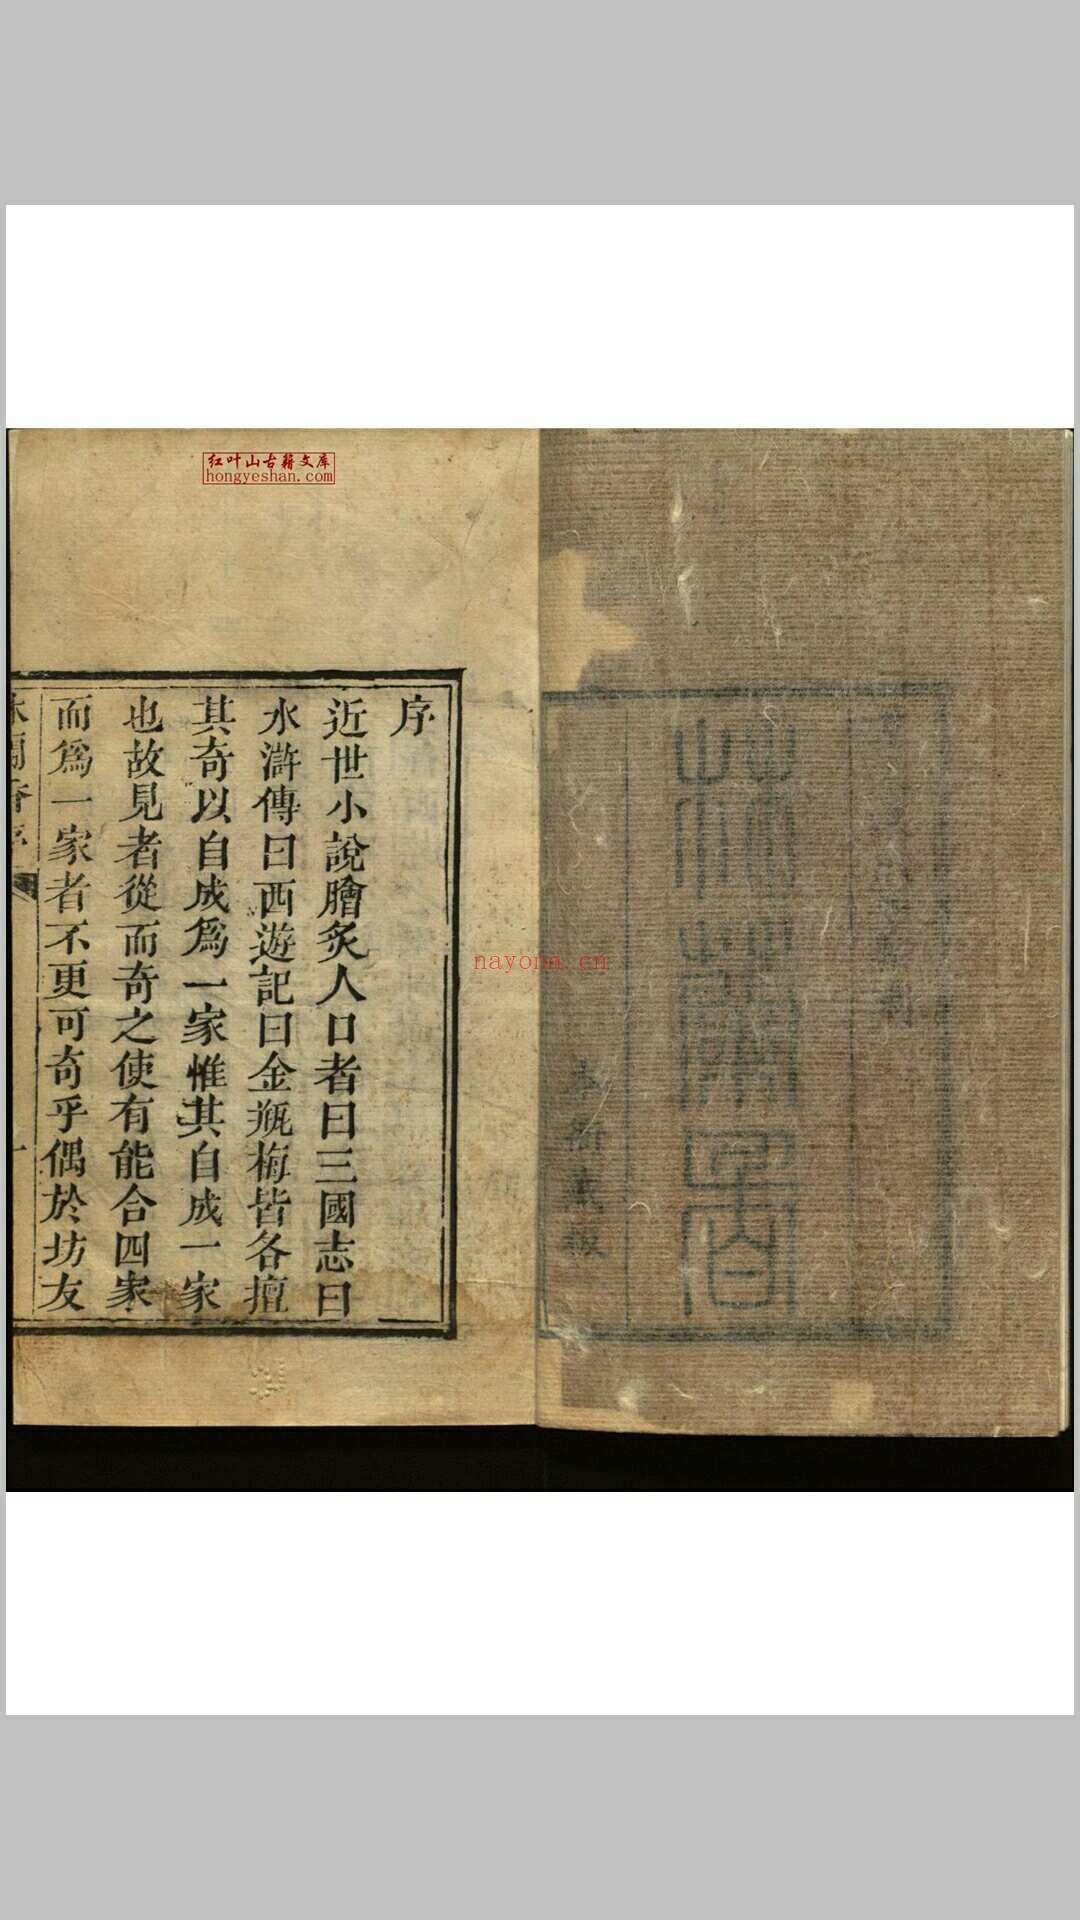 红叶山古籍文库
hongyeshan.com
nayona.cn
林蘭香
本衙藏板
序
近世小說膾炙人口者曰三國志曰
水滸傳曰西遊記曰金瓶梅皆各擅
其奇以自成爲一家惟其自成一家
也故見者從而奇之使有能合四家
而爲一家者不更可奇乎偶於坊友
林蘭香序
一